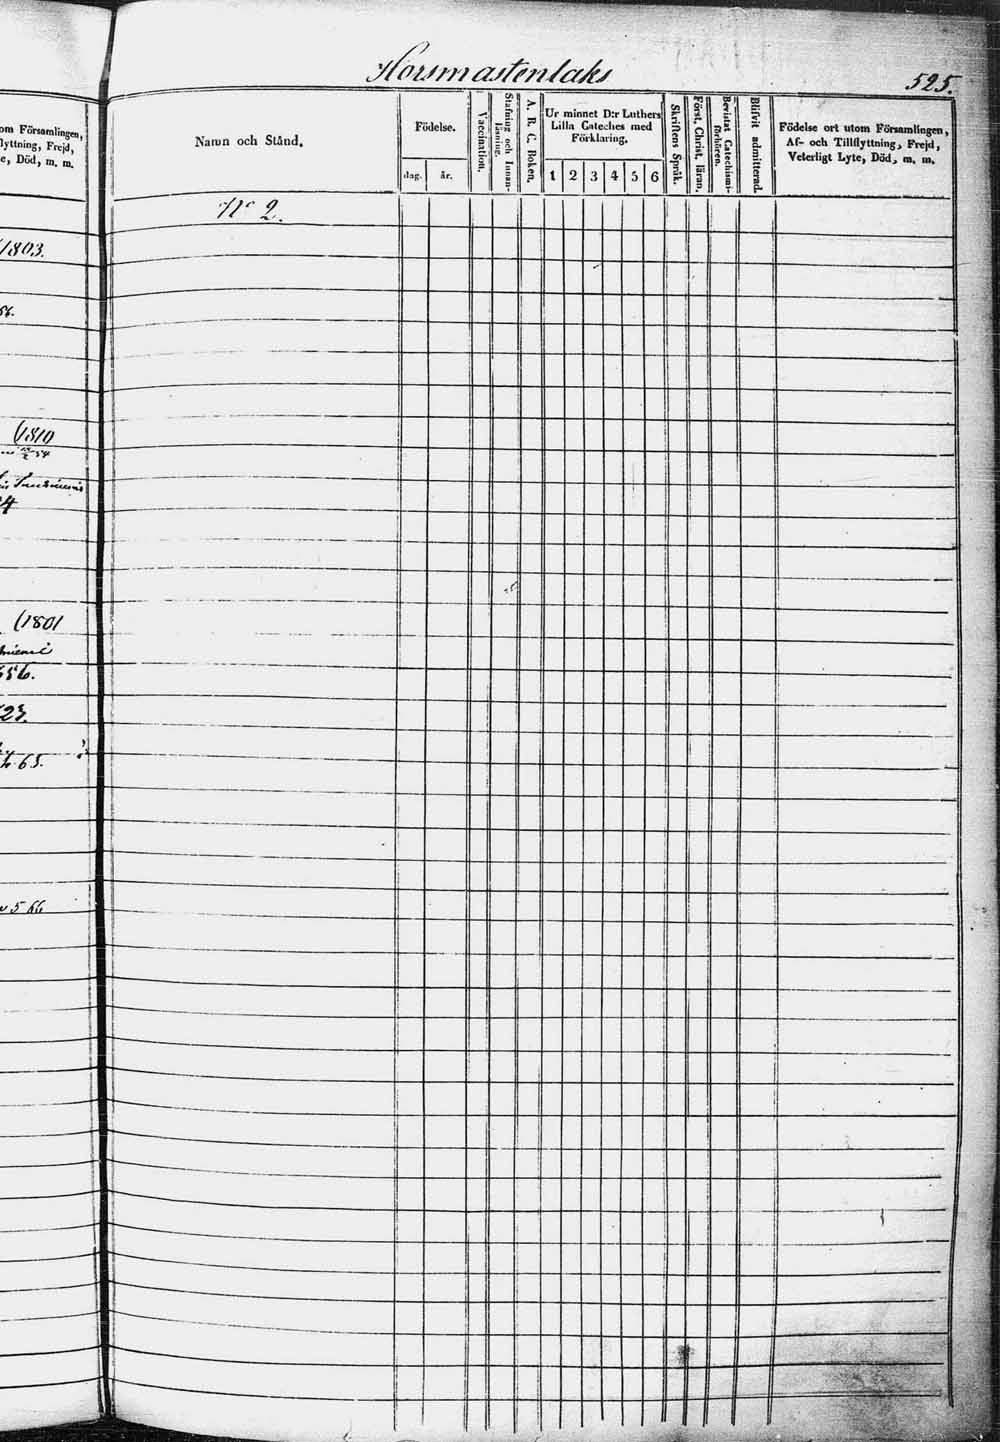 Horsmastenlaks
525.
om Församlingen,
lyttning, Frejd,
e, Död, m. m.
1803.
56.
(1810
24
(1801
656.
23.
65.
5 66
Namn och Stånd.
Födelse.
dag.
år.
Vaccination.
Stafning och Innan-
läsning.
A. B. C. Boken.
Ur minnet D:r Luthers
Lilla Cateches med
Förklaring.
1 2 3 4 5 6
Skriftens Språk.
Först. Christ. läran.
Bevistat Catechismi-
förhören.
Blifvit admitterad.
Födelse ort utom Församlingen,
Af- och Tillflyttning, Frejd,
Veterligt Lyte, Död, m. m.
No 2.